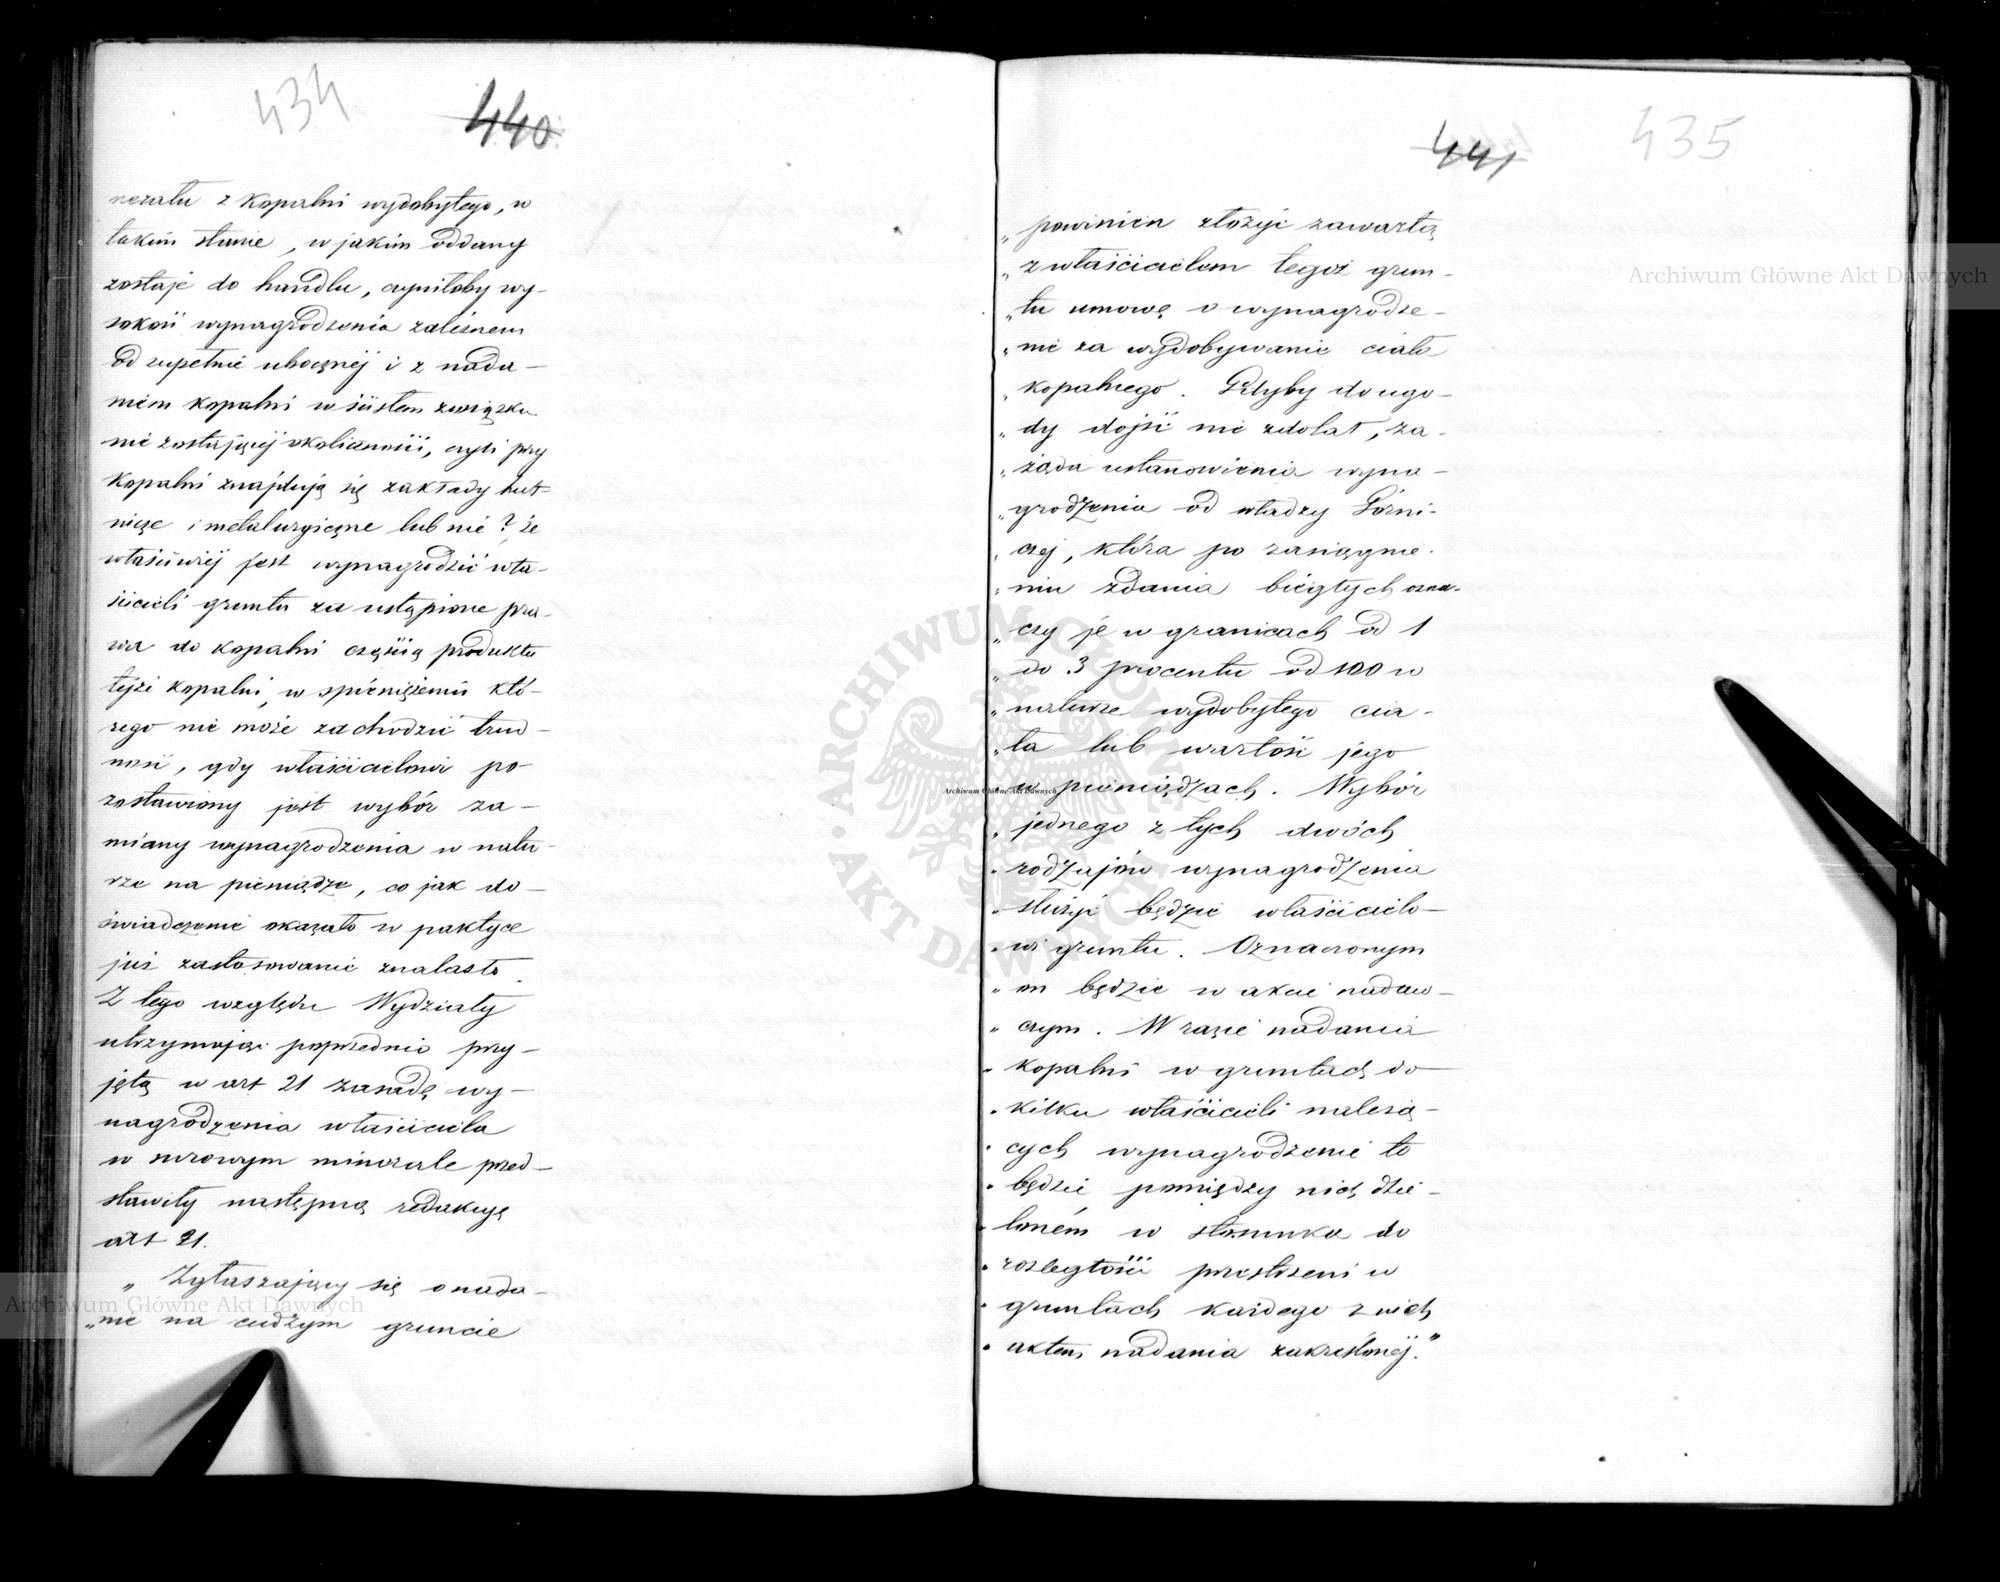 434
440
nerału z kopalni wydobytego, w
takim stanie, w jakim oddany
zostaje do handlu, czyniłoby wy-
sokość wynagrodzenia zależnem
od zupełnie ubocznej i z nada-
niem kopalni w ścisłem związku
nie zostającej okoliczności, czyli przy
kopalni znajdują się zakłady hut-
nicze i metalurgiczne lub nie? że
właściwiej jest wynagrodzić wła-
ścicieli gruntu za ustąpione pra-
wa do kopalni częścią produktu
tejże kopalni, w spieniężeniu któ-
rego nie może zachodzić trud-
ność, gdy właścicielowi po-
zostawiony jest wybór za-
miany wynagrodzenia w natu-
rze na pieniądze, co jak do-
świadczenie okazało w paktyce
już zastosowanie znalazło.
Z tego względu Wydziały
utrzymując poprzednio przy-
jętą w art 21 zasadę wy-
nagrodzenia właściciela
w surowym minerale przed-
stawiły następną redakcyę
art 21.
„ Zgłaszający się o nada-
„nie na cudzym gruncie
441
435
„ powinien złożyć zawartą
„ z właścicielem tegoż grun-
„ tu umowę o wynagrodze-
„ nie za wydobywanie ciała
„ kopalnego. Gdyby do ugo-
„ dy dojść nie zdołał, za-
„ żąda ustanowienia wyna-
„ grodzenia od władzy Górni-
„ czej, która po zasiągnie-
„ niu zdania biegłych ozna-
„ czy je w granicach od 1
„ do 3 procentu od 100 w
„ naturze wydobytego cia-
„ ła lub wartość jego
„ w pieniądzach. Wybór
„ jednego z tych dwóch
„ rodzajów wynagrodzenia
„ służyć będzie właścicielo-
„ wi gruntu. Oznaczonym
„ on będzie w akcie nadaw-
„ czym. W razie nadania
„ kopalni w gruntach do
„ kilku właścicieli należą-
„ cych wynagrodzenie to
„ będzie pomiędzy nich dzie-
„ loném w stosunku do
„ rozległości przestrzeni w
„ gruntach każdego z nich
„ aktem nadania zakreślonéj."
Archiwum Główne Akt Dawnych
Archiwum Główne Akt Dawnych
Archiwum Główne Akt Dawnych
ARCHIWUM GŁÓWNE AKT DAWNYCH